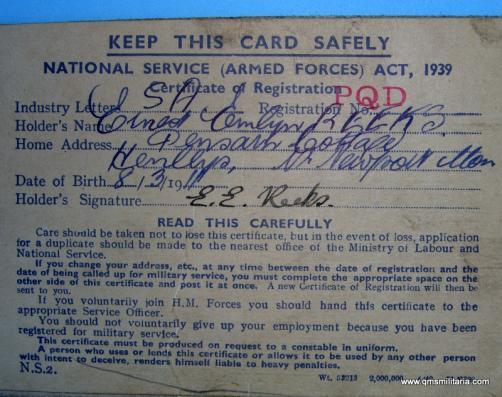 KEEP THIS CARD SAFELY
NATIONAL SERVICE (ARMED FORCES) ACT, 1939
Certificate of Registration
Industry Letters Registration No. PQD
Holder's Name Ernest Emlyn REEKS.
Home Address Cottage
Henllys, Nr Newport Mon
Date of Birth 8/3/19
Holder's Signature E. E. Reeks.
READ THIS CAREFULLY
Care should be taken not to lose this certificate, but in the event of loss, application
for a duplicate should be made to the nearest office of the Ministry of Labour and
National Service.
If you change your address, etc., at any time between the date of registration and the
date of being called up for military service, you must complete the appropriate space on the
other side of this certificate and post it at once. A new Certificate of Registration will then be
sent to you.
If you voluntarily join H.M. Forces you should hand this certificate to the
appropriate Service Officer.
You should not voluntarily give up your employment because you have been
registered for military service.
This certificate must be produced on request to a constable in uniform.
A person who uses or lends this certificate or allows it to be used by any other person
with intent to deceive, renders himself liable to heavy penalties.
N.S.2.
Wt. 2,000,000
www.qmsmilitaria.com